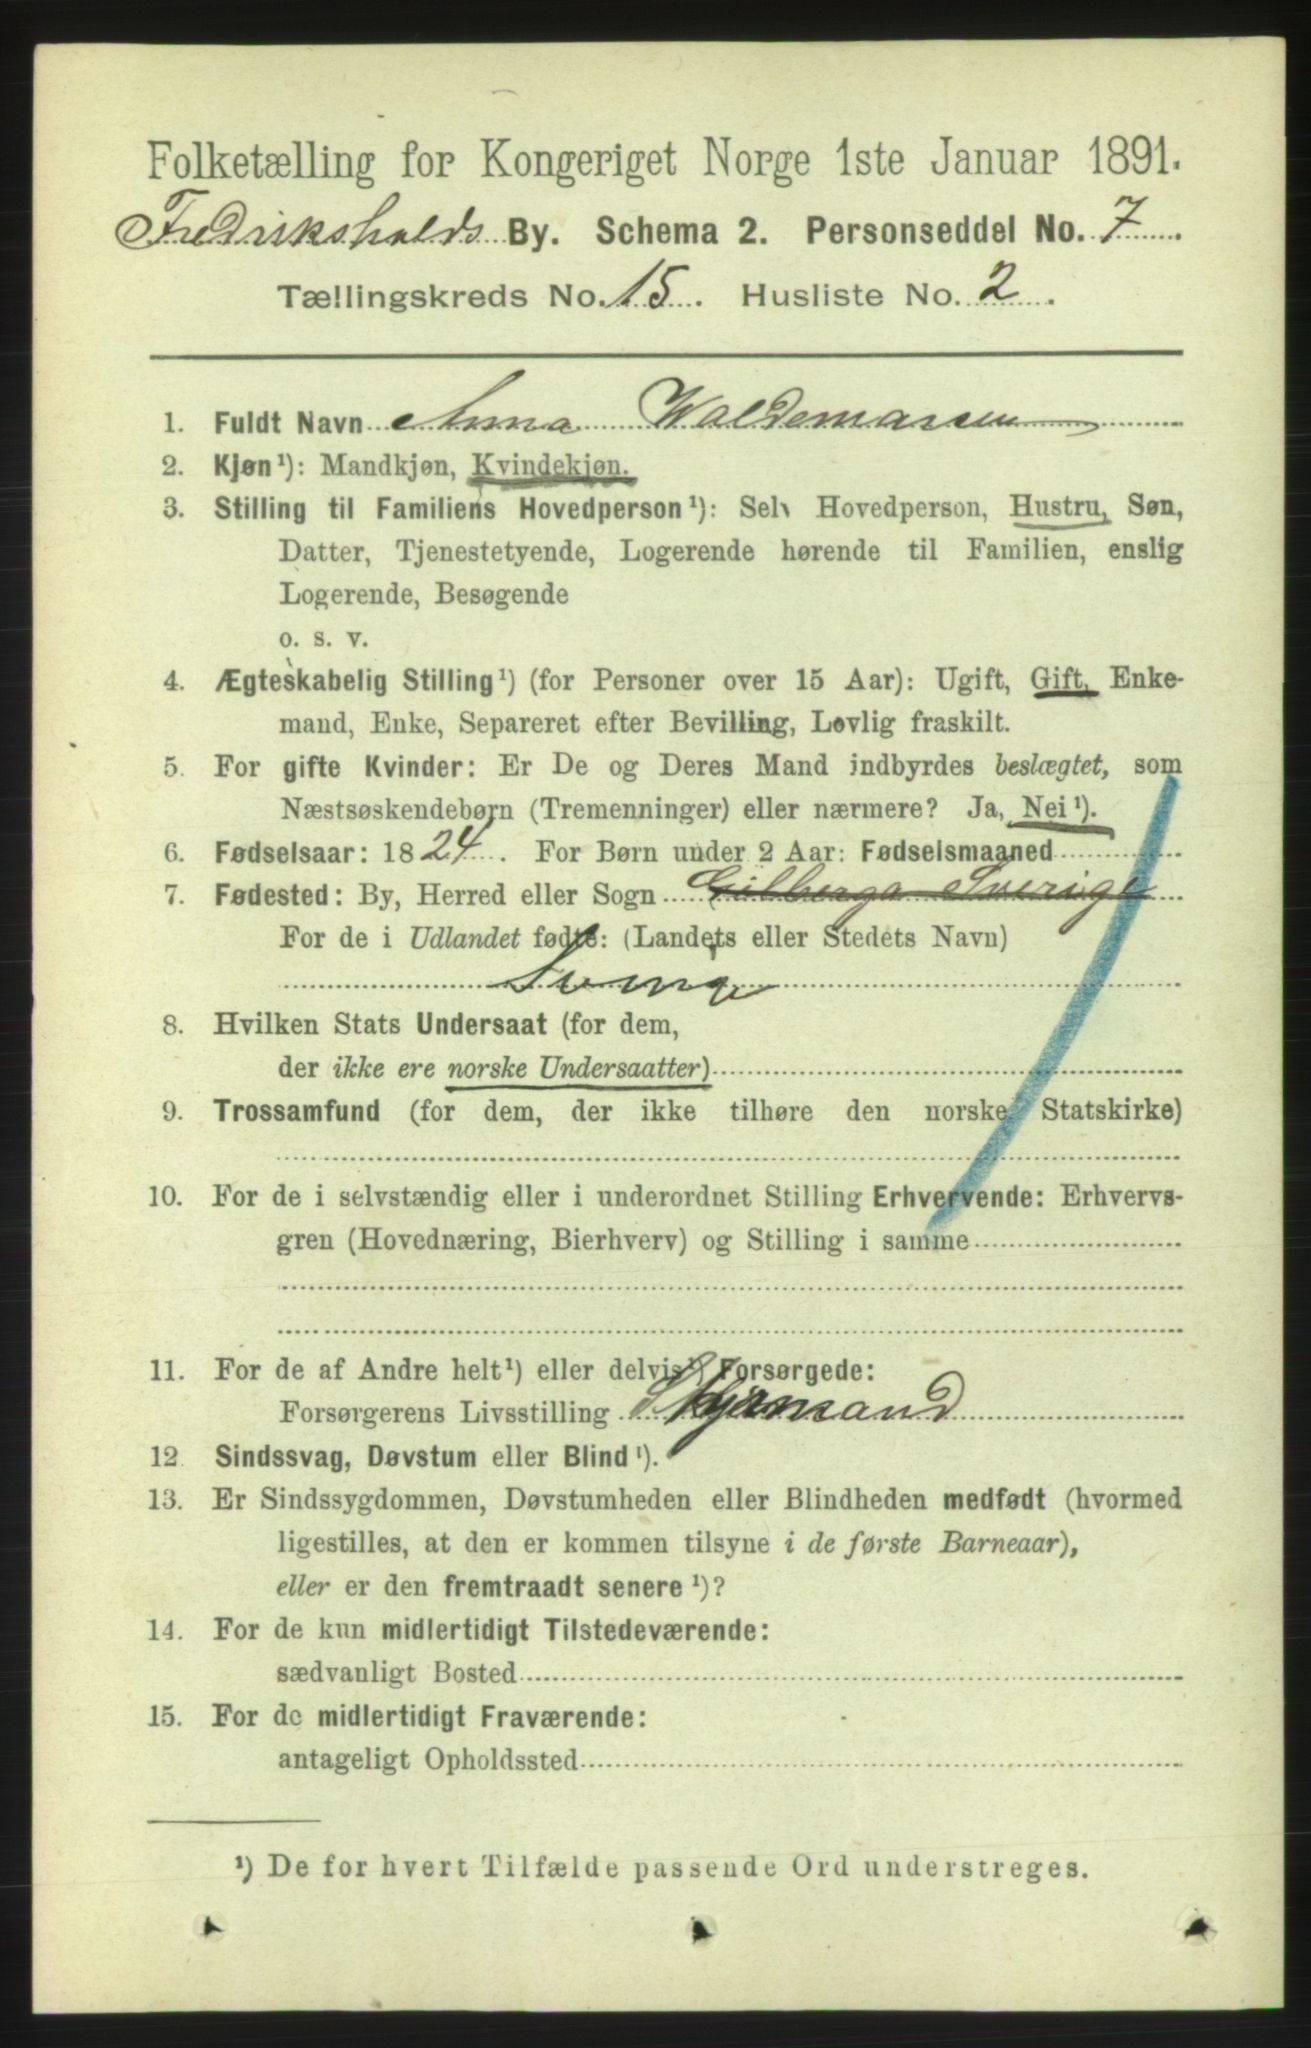 Folketælling for Kongeriget Norge 1ste Januar 1891.
Fredrikshalds By. Schema 2. Personseddel No. 7
Tællingskreds No. 15. Husliste No. 2.
1. Fuldt Navn Anna Waldemarsen
2. Kjøn¹): Mandkjøn, Kvindekjøn.
3. Stilling til Familiens Hovedperson¹): Selv Hovedperson, Hustru, Søn,
Datter, Tjenestetyende, Logerende hørende til Familien, enslig
Logerende, Besøgende
o. s. v.
4. Ægteskabelig Stilling¹) (for Personer over 15 Aar): Ugift, Gift, Enke-
mand, Enke, Separeret efter Bevilling, Lovlig fraskilt.
5. For gifte Kvinder: Er De og Deres Mand indbyrdes beslægtet, som
Næstsøskendebørn (Tremenninger) eller nærmere? Ja, Nei¹).
6. Fødselsaar: 1824. For Børn under 2 Aar: Fødselsmaaned
7. Fødested: By, Herred eller Sogn Gilberga Sverige
For de i Udlandet fødte: (Landets eller Stedets Navn)
Sverige
8. Hvilken Stats Undersaat (for dem,
der ikke ere norske Undersaatter)
9. Trossamfund (for dem, der ikke tilhøre den norske Statskirke)
10. For de i selvstændig eller i underordnet Stilling Erhvervende: Erhvervs-
gren (Hovednæring, Bierhverv) og Stilling i samme
11. For de af Andre helt¹) eller delvis¹) Forsørgede:
Forsørgerens Livsstilling
12. Sindssvag, Døvstum eller Blind¹).
13. Er Sindssygdommen, Døvstumheden eller Blindheden medfødt (hvormed
ligestilles, at den er kommen tilsyne i de første Barneaar),
eller er den fremtraadt senere¹)?
14. For de kun midlertidigt Tilstedeværende:
sædvanligt Bosted
15. For de midlertidigt Fraværende:
antageligt Opholdssted
¹) De for hvert Tilfælde passende Ord understreges.